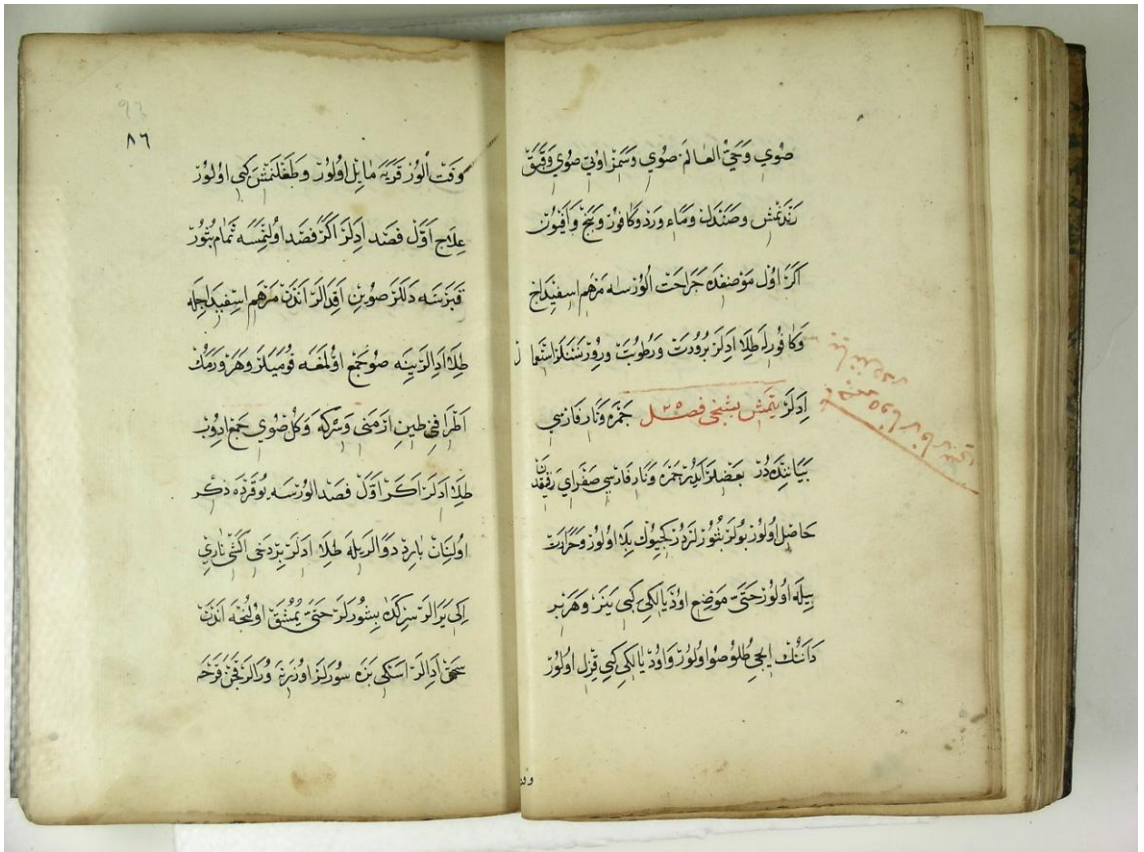 صوي وحي العالم صوي وسمز اوتي صوي وقبق
رندنمش وصندل وماء ورد وكافور وبنج وافيون
اكر اول موضعده جراحت الورسه مرهم اسفيداج
وكافورله طلا ادلر برودت ورطوبت ويرر سنلر استعمال
ادلر يتمش بشنجي فصل ٢٥ جمره ونار فارسي
بيانندهدر بعضلر ايدر جمره ونار فارسي صفراي رقيقدن
حاصل اولور بولر بثورلردر كجيوك بلا اولور وحرارت
بيله اولور حتى موضع اود يالكي كبي ينر وهر بر
دانه نك ايجي طلو صو اولور واود يالكي كبي قزل اولور
وقت
٩٦
٨٦
وقت الور قريه مايل اولور وطغلنمش كبي اولور
علاج اول فصد ادلر اكر فصد اولنمسه تمام بثور
قبرسه دلر صوين اقدالر اندن مرهم اسفيداجله
طلا ادالر ينه صو جمع اولمغه قوميلر وهر ورمك
اطرافي طين ارمني وسركه وكل صوي جمع ادوب
طلا ادلر اكر اول فصد الورسه يوقرده ذكر
اولنان بارد دوالريله طلا ادلر بر دخي اكشي ناري
اكي يرالر سركده بشورلر حتى يمشق اولنجه اندن
سحق ادالر اسكي بزه سورلر اوزرنه ورالر قجن قرحه